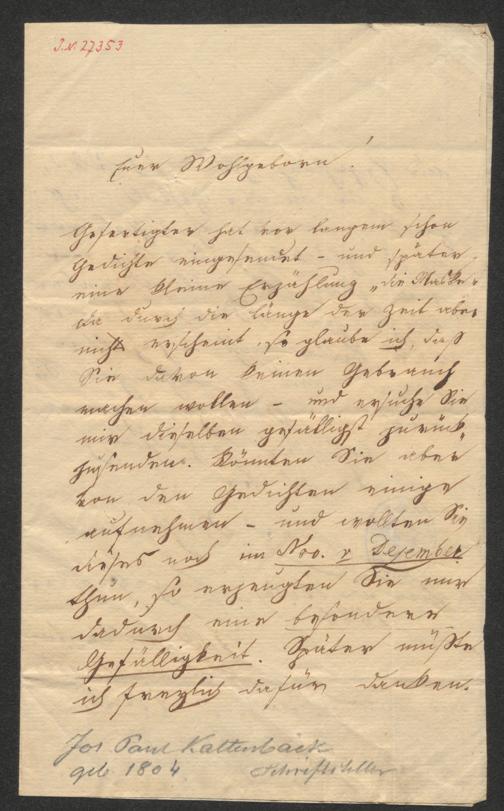 J.N. 27353
Euer Wohlgeborn!
Gefertigter hat vor langem schon
Gedichte eingesendet – und später
eine kleine Erzählung „die Maske"
da durch die länge der Zeit aber
nichts erscheint, so glaube ich, daß
Sie davon keinen Gebrauch
machen wollen – und ersuche Sie
mir dieselben gefälligst zurück-
zusenden. Könnten Sie aber
von den Gedichten einige
aufnehmen – und wollten Sie
dieses noch im Nov. Dezember
thun, so erzeugten Sie mir
dadurch eine besondere
Gefälligkeit. Später müßte
ich freylich dafür danken.
Jos Paul Kaltenbäck
geb 1804 Schriftsteller